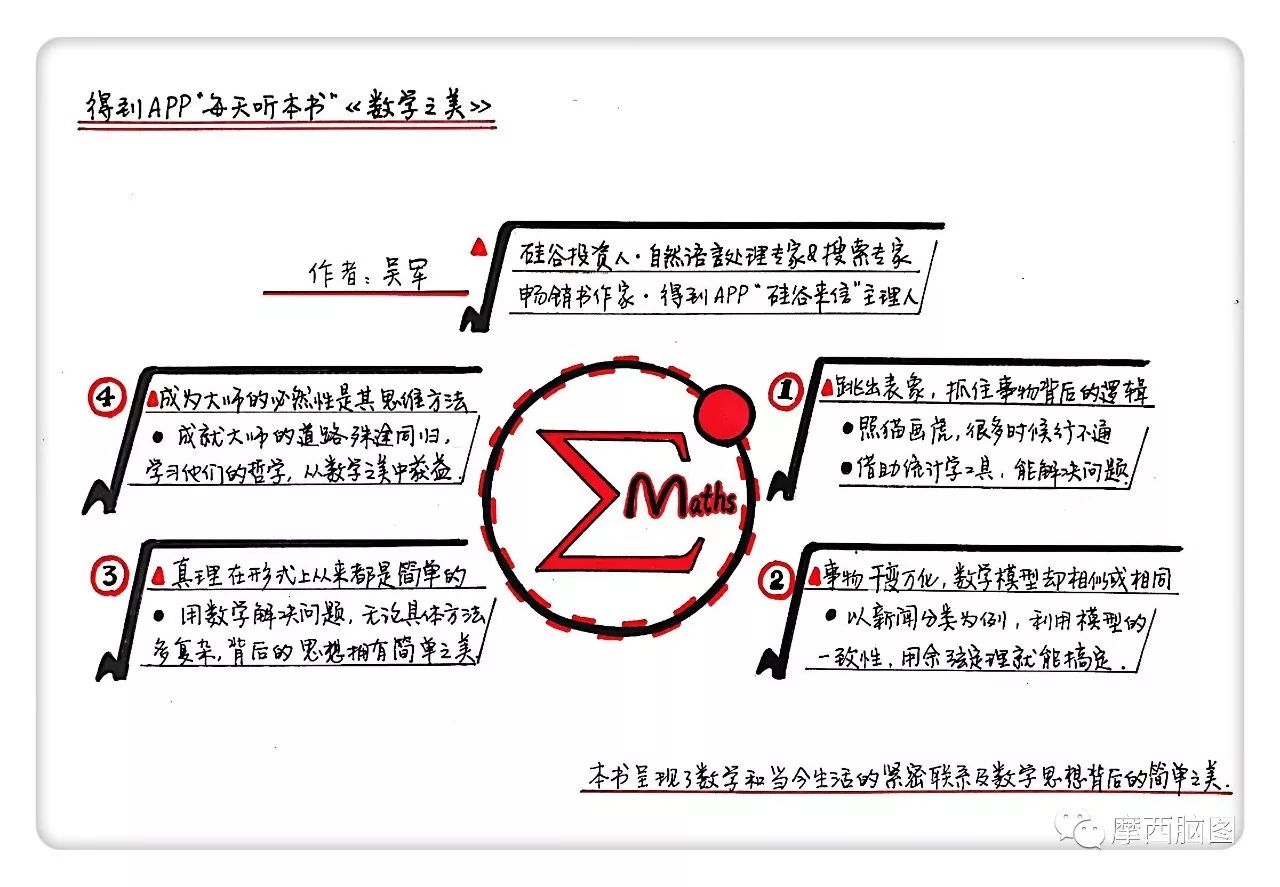 得到APP“每天听本书”《数学之美》
作者：吴军
硅谷投资人·自然语言处理专家&搜索专家
畅销书作家·得到APP“硅谷来信”主理人
1
跳出表象，抓住事物背后的逻辑
照猫画虎，很多时候行不通
借助统计学工具，能解决问题.
2
事物千变万化，数学模型却相似或相同
以新闻分类为例，利用模型的
一致性，用余弦定理就能搞定.
3
真理在形式上从来都是简单的
用数学解决问题，无论具体方法
多复杂，背后的思想拥有简单之美.
4
成为大师的必然性是其思维方法
成就大师的道路殊途同归，
学习他们的哲学，从数学之美中获益.
Σ Maths
本书呈现了数学和当今生活的紧密联系及数学思想背后的简单之美.
摩西脑图